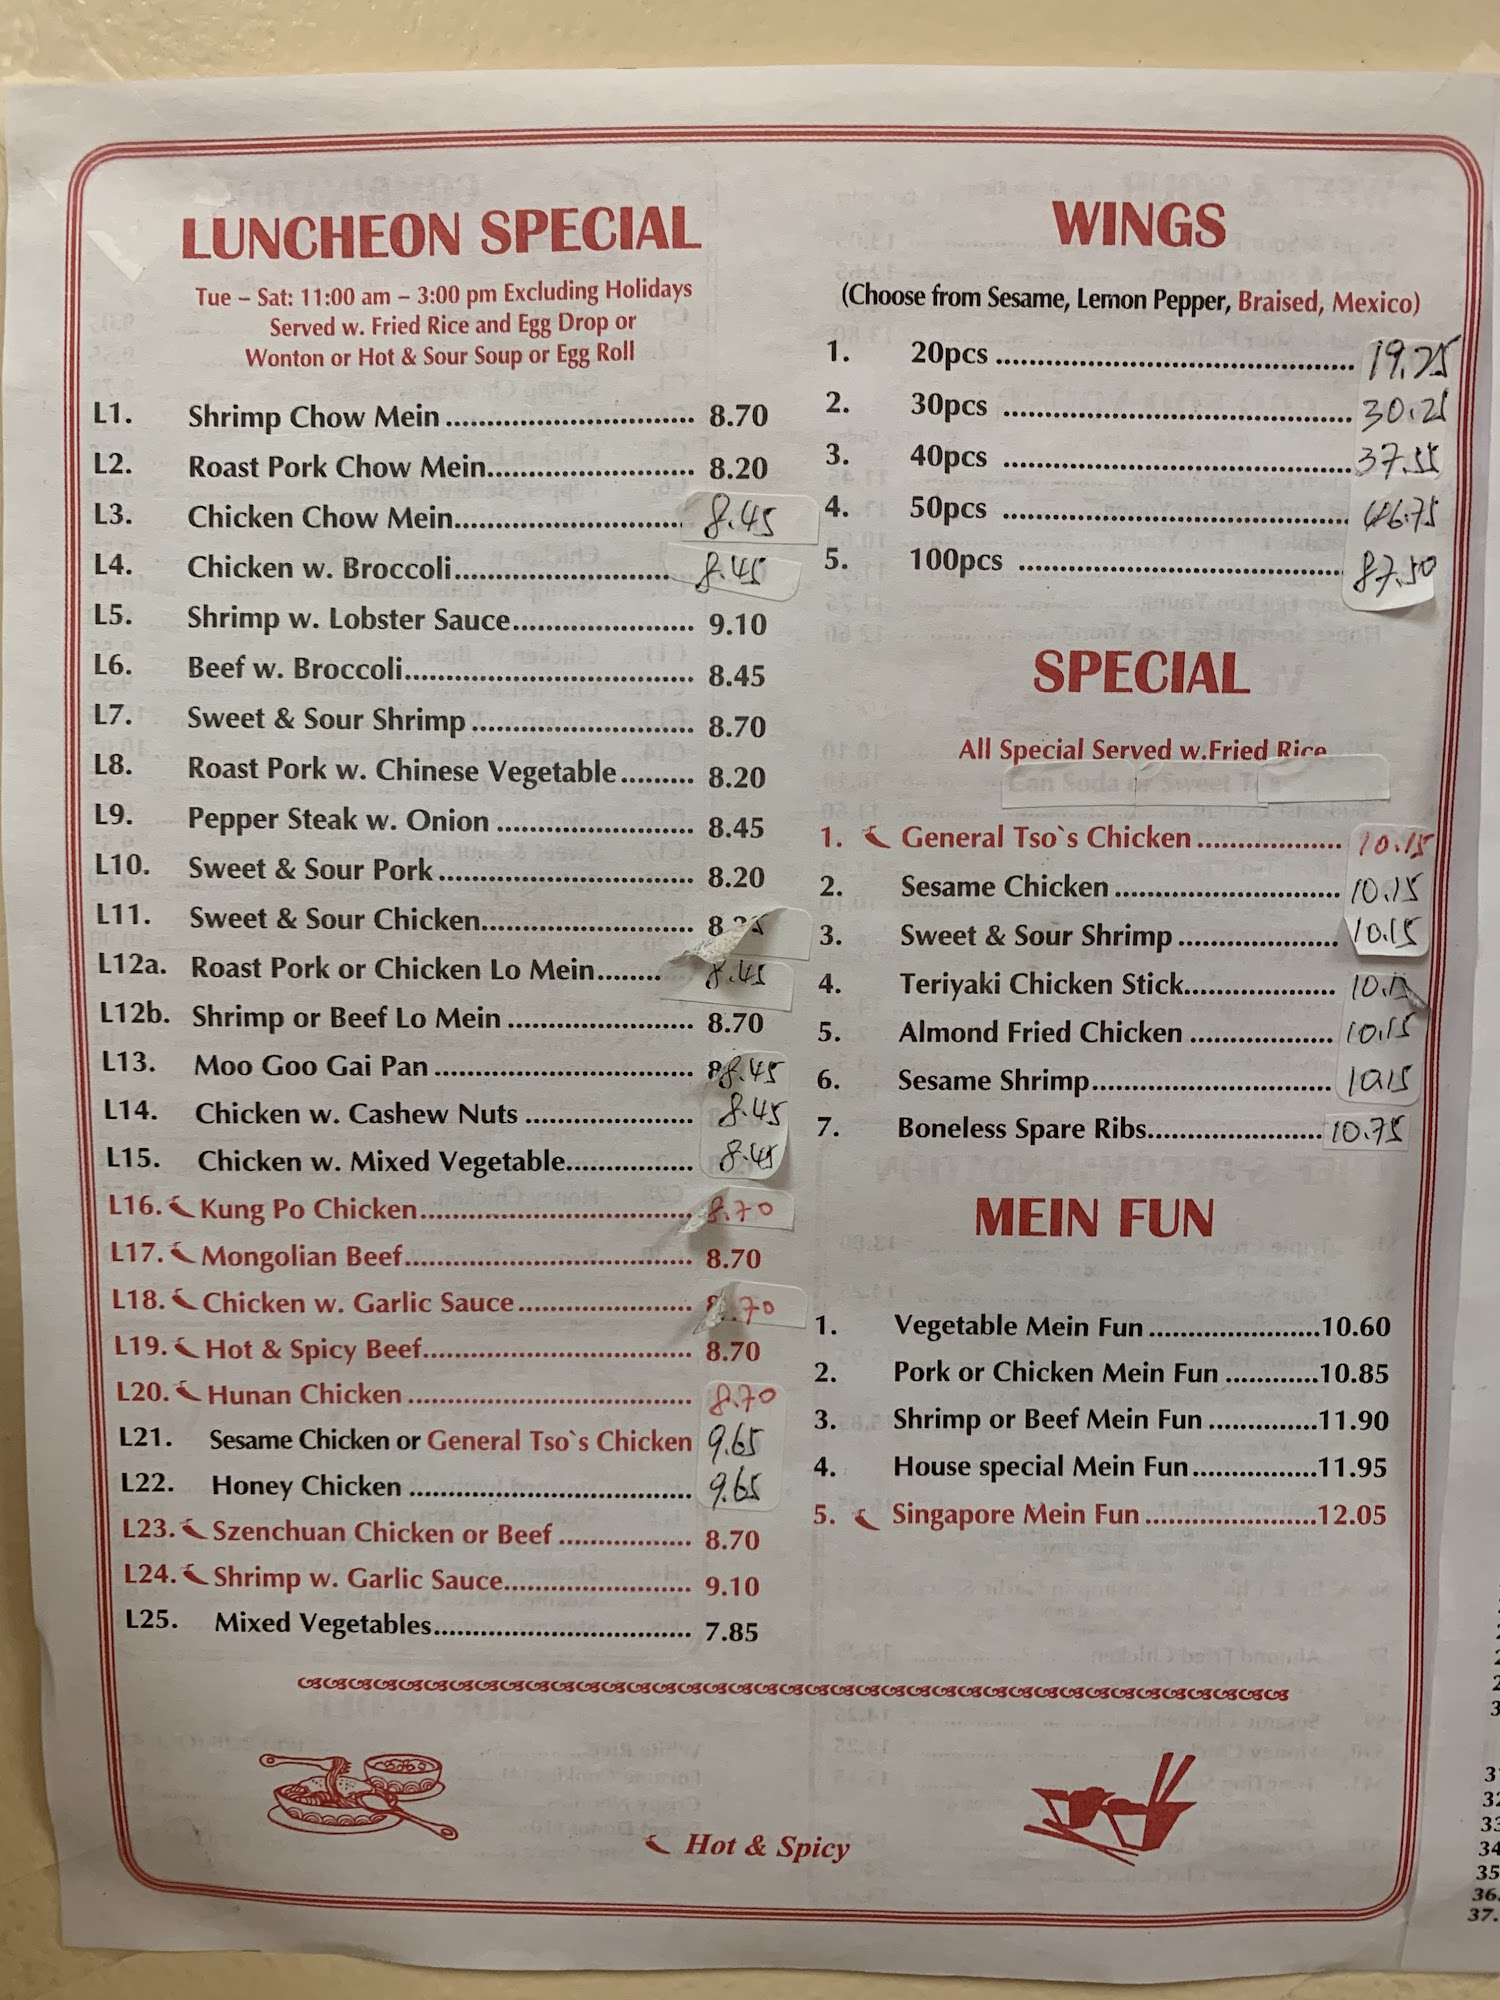 LUNCHEON SPECIAL
Tue – Sat: 11:00 am – 3:00 pm Excluding Holidays
Served w. Fried Rice and Egg Drop or
Wonton or Hot & Sour Soup or Egg Roll
L1. Shrimp Chow Mein 8.70
L2. Roast Pork Chow Mein 8.20
L3. Chicken Chow Mein 8.45
L4. Chicken w. Broccoli 8.45
L5. Shrimp w. Lobster Sauce 9.10
L6. Beef w. Broccoli 8.45
L7. Sweet & Sour Shrimp 8.70
L8. Roast Pork w. Chinese Vegetable 8.20
L9. Pepper Steak w. Onion 8.45
L10. Sweet & Sour Pork 8.20
L11. Sweet & Sour Chicken
L12a. Roast Pork or Chicken Lo Mein 8.45
L12b. Shrimp or Beef Lo Mein 8.70
L13. Moo Goo Gai Pan 8.45
L14. Chicken w. Cashew Nuts 8.45
L15. Chicken w. Mixed Vegetable 8.45
L16. Kung Po Chicken 8.70
L17. Mongolian Beef 8.70
L18. Chicken w. Garlic Sauce 8.70
L19. Hot & Spicy Beef 8.70
L20. Hunan Chicken 8.70
L21. Sesame Chicken or General Tso`s Chicken 9.65
L22. Honey Chicken 9.65
L23. Szenchuan Chicken or Beef 8.70
L24. Shrimp w. Garlic Sauce 9.10
L25. Mixed Vegetables 7.85
WINGS
(Choose from Sesame, Lemon Pepper, Braised, Mexico)
1. 20pcs 19.25
2. 30pcs 30.25
3. 40pcs 37.55
4. 50pcs 46.75
5. 100pcs 87.50
SPECIAL
All Special Served w.Fried Rice
Can Soda or Sweet
1. General Tso`s Chicken 10.15
2. Sesame Chicken 10.15
3. Sweet & Sour Shrimp 10.15
4. Teriyaki Chicken Stick
5. Almond Fried Chicken 10.15
6. Sesame Shrimp 10.15
7. Boneless Spare Ribs 10.75
MEIN FUN
1. Vegetable Mein Fun 10.60
2. Pork or Chicken Mein Fun 10.85
3. Shrimp or Beef Mein Fun 11.90
4. House special Mein Fun 11.95
5. Singapore Mein Fun 12.05
Hot & Spicy
32
33
34
35
36.
37.